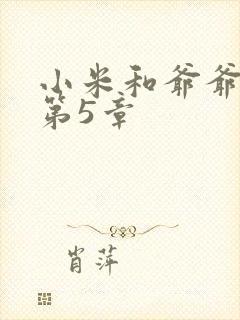 小米和爷爷
第5章
肖萍